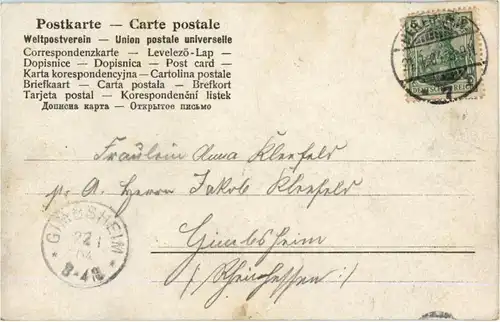 Postkarte — Carte postale
Weltpostverein — Union postale universelle
Correspondenzkarte — Levelező-Lap —
Dopisnice — Dopisnica — Post card —
Karta korespondencyjna — Cartolina postale
Briefkaart — Carta postala — Brefkort
Tarjeta postal — Korespondenční listek
Дописна карта — Открытое письмо
DEUTSCHES REICH
Fräulein Anna Kleefeld
p. A. Herrn Jakob Kleefeld
Gimbsheim
(Rheinhessen :)
* GIMBSHEIM *
22 1
04
8-4N